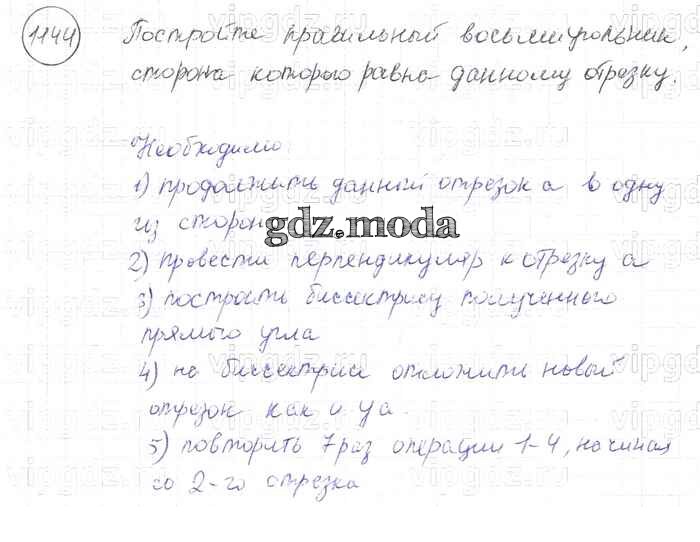 1144
Постройте правильный восьмиугольник,
сторона которого равна данному отрезку.
Необходимо:
1) продолжить данный отрезок а в одну
из сторон
gdz.moda
2) провести перпендикуляр к отрезку а
3) построить биссектрису полученного
прямого угла
4) на биссектрисе отложить новый
отрезок как и у а.
5) повторить 7 раз операции 1-4, начиная
со 2-го отрезка